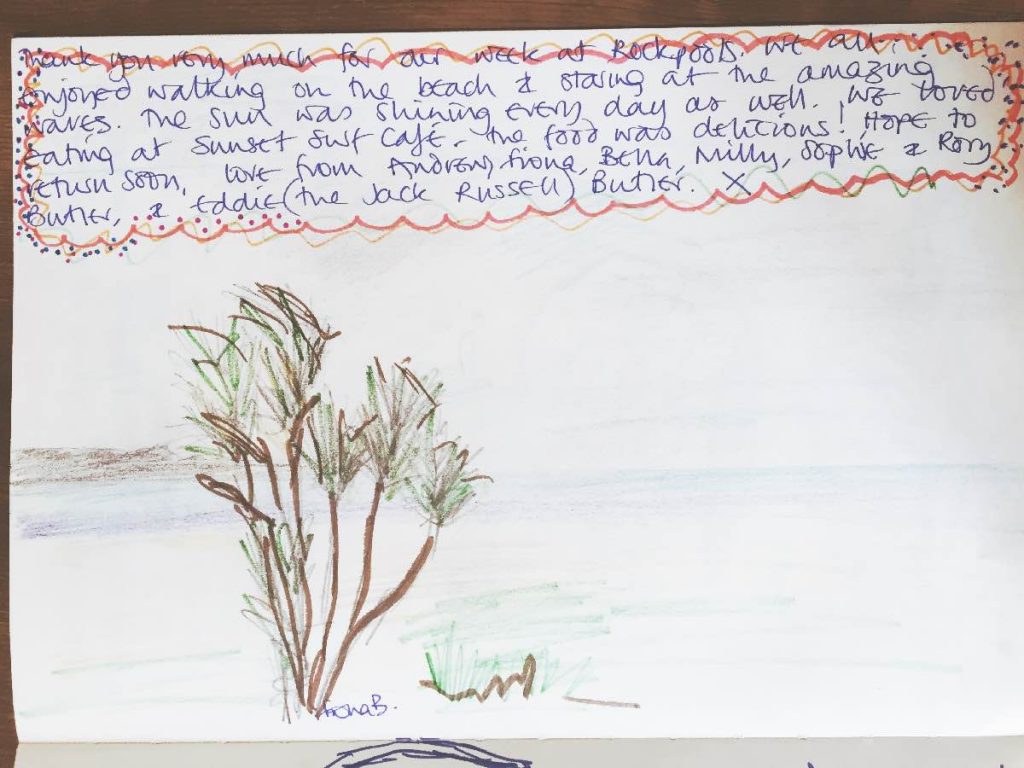 Thank you very much for our week at Rockpools. We all
enjoyed walking on the beach & staring at the amazing
waves. The sun was shining every day as well. We loved
eating at Sunset Surf Café. The food was delicious! Hope to
return soon, love from Andrew, Fiona, Bella, Milly, Sophie & Rory
Butler, & Eddie (the Jack Russell) Butler. X
Fiona B.